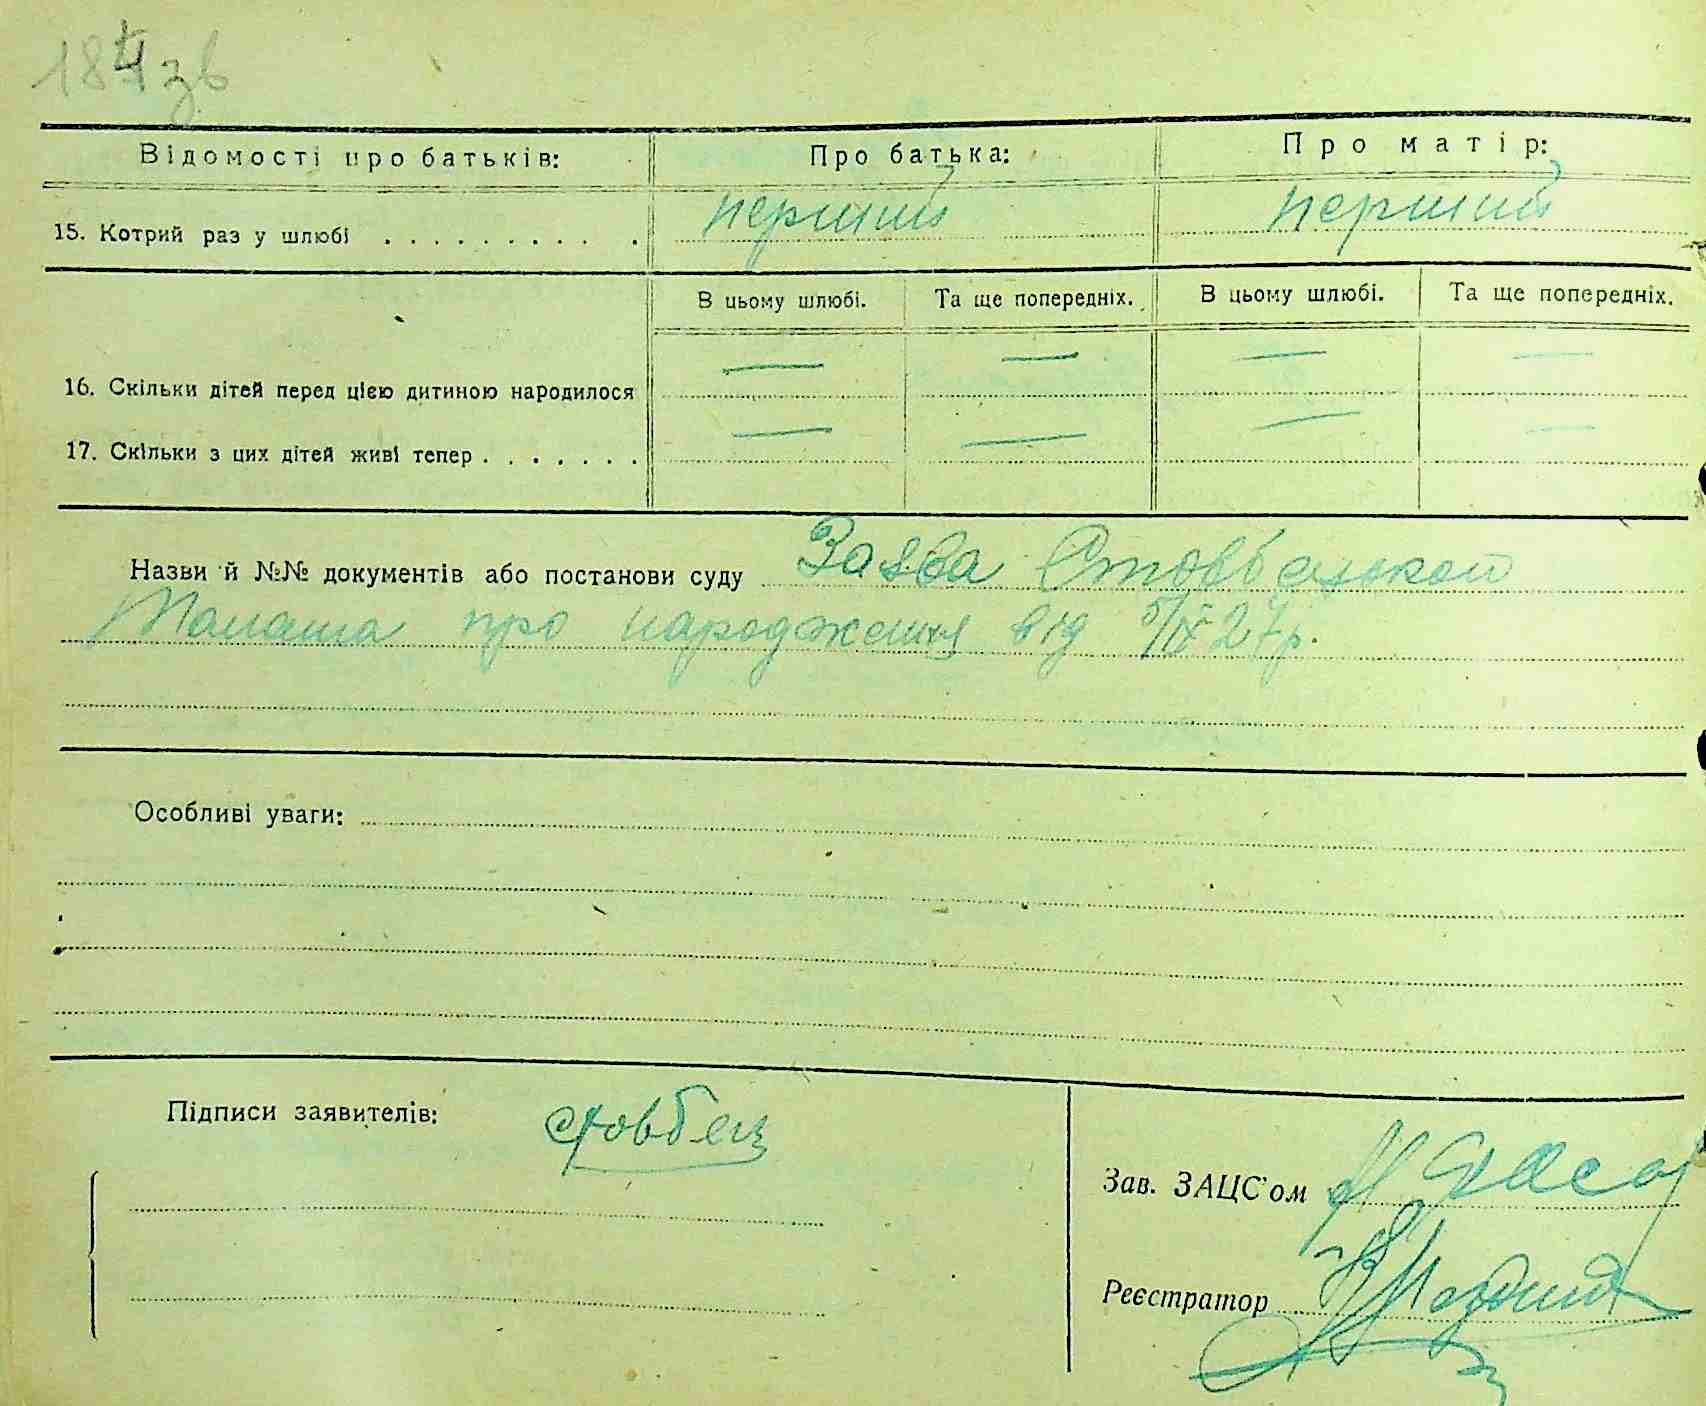 184 зв
Відомості про батьків: Про батька: Про матір:
15. Котрий раз у шлюбі . . . . . . . . . . перший перший
В цьому шлюбі. Та ще попередніх. В цьому шлюбі. Та ще попередніх.
— — — —
16. Скільки дітей перед цією дитиною народилося
— — — —
17. Скільки з цих дітей живі тепер . . . . . . .
Назви й №№ документів або постанови суду Заява
про народження від 5/IX 27р.
Особливі уваги:
Підписи заявителів: Стовбец
Зав. ЗАЦС'ом
Реєстратор